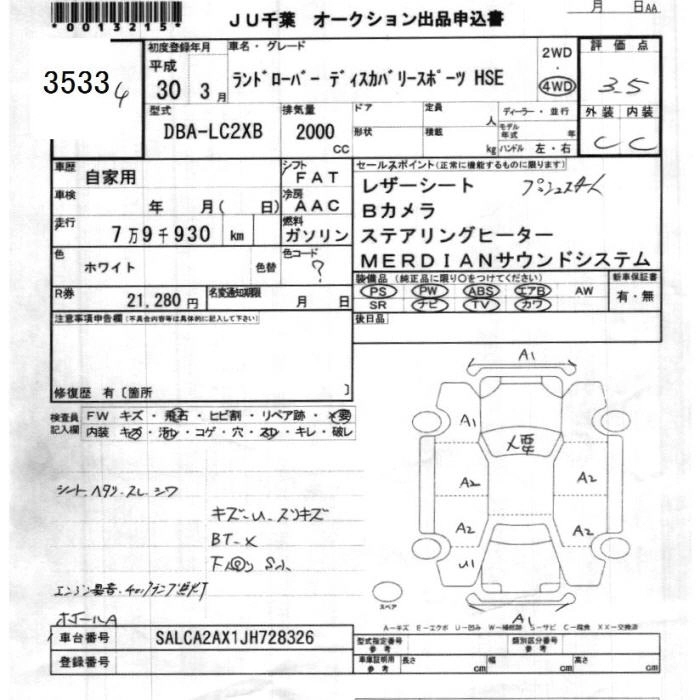 *0013215*
JU千葉 オークション出品申込書
月 日AA
35334
初度登録年月
平成
30 3月
車名・グレード
ランドローバー ディスカバリースポーツ HSE
2WD
・
4WD
評価点
3.5
外装 内装
C C
型式
DBA-LC2XB
排気量
2000
CC
ドア
形状
定員
人
積載
kg
ディーラー・並行
モデル年式 年
ハンドル 左・右
車歴
自家用
シフト
FAT
車検
年 月( 日)
冷房
AAC
走行
7万9千930 km
燃料
ガソリン
色
ホワイト
色替
色コード
?
R券
21,280円
名変通知期限
月 日
セールスポイント(正常に機能するものに限ります)
レザーシート プッシュスタート
Bカメラ
ステアリングヒーター
MERDIANサウンドシステム
装備品 (純正品に限り○をつけてください)
PS PW ABS エアB AW
SR ナビ TV カワ
新車保証書
有・無
後日品
注意事項申告欄(不具合内容等は具体的に記入して下さい)
修復歴 有〔箇所 〕
検査員記入欄
FW キズ・飛石・ヒビ割・リペア跡・×要
内装 キズ・汚れ・コゲ・穴・スレ・キレ・破レ
シート ヘタリ・スレ・シワ
キズ-U・スリキズ
BT-X
A1
A1
×要
A2
A2
A2
A2
U1
A1
スペア
A-キズ E-エクボ U-凹み W-補修跡 S-サビ C-腐食 XX-交換済
車台番号
SALCA2AX1JH728326
登録番号
型式指定番号
参考
類別区分番号
参考
車庫証明用
参考
長さ cm
幅 cm
高さ cm